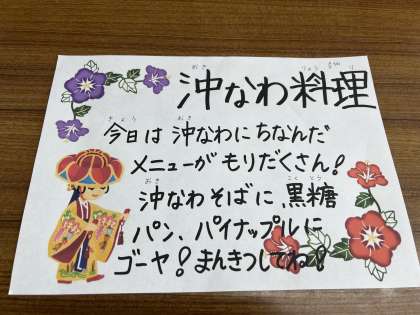 沖なわ料理
今日は 沖なわにちなんだ
メニューが もりだくさん!
沖なわそばに、黒糖
パン、パイナップルに
ゴーヤ!まんきつしてね!